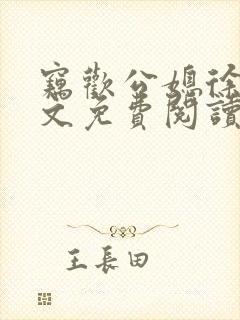 竊歡公媳徐
文免費閱讀
王長田